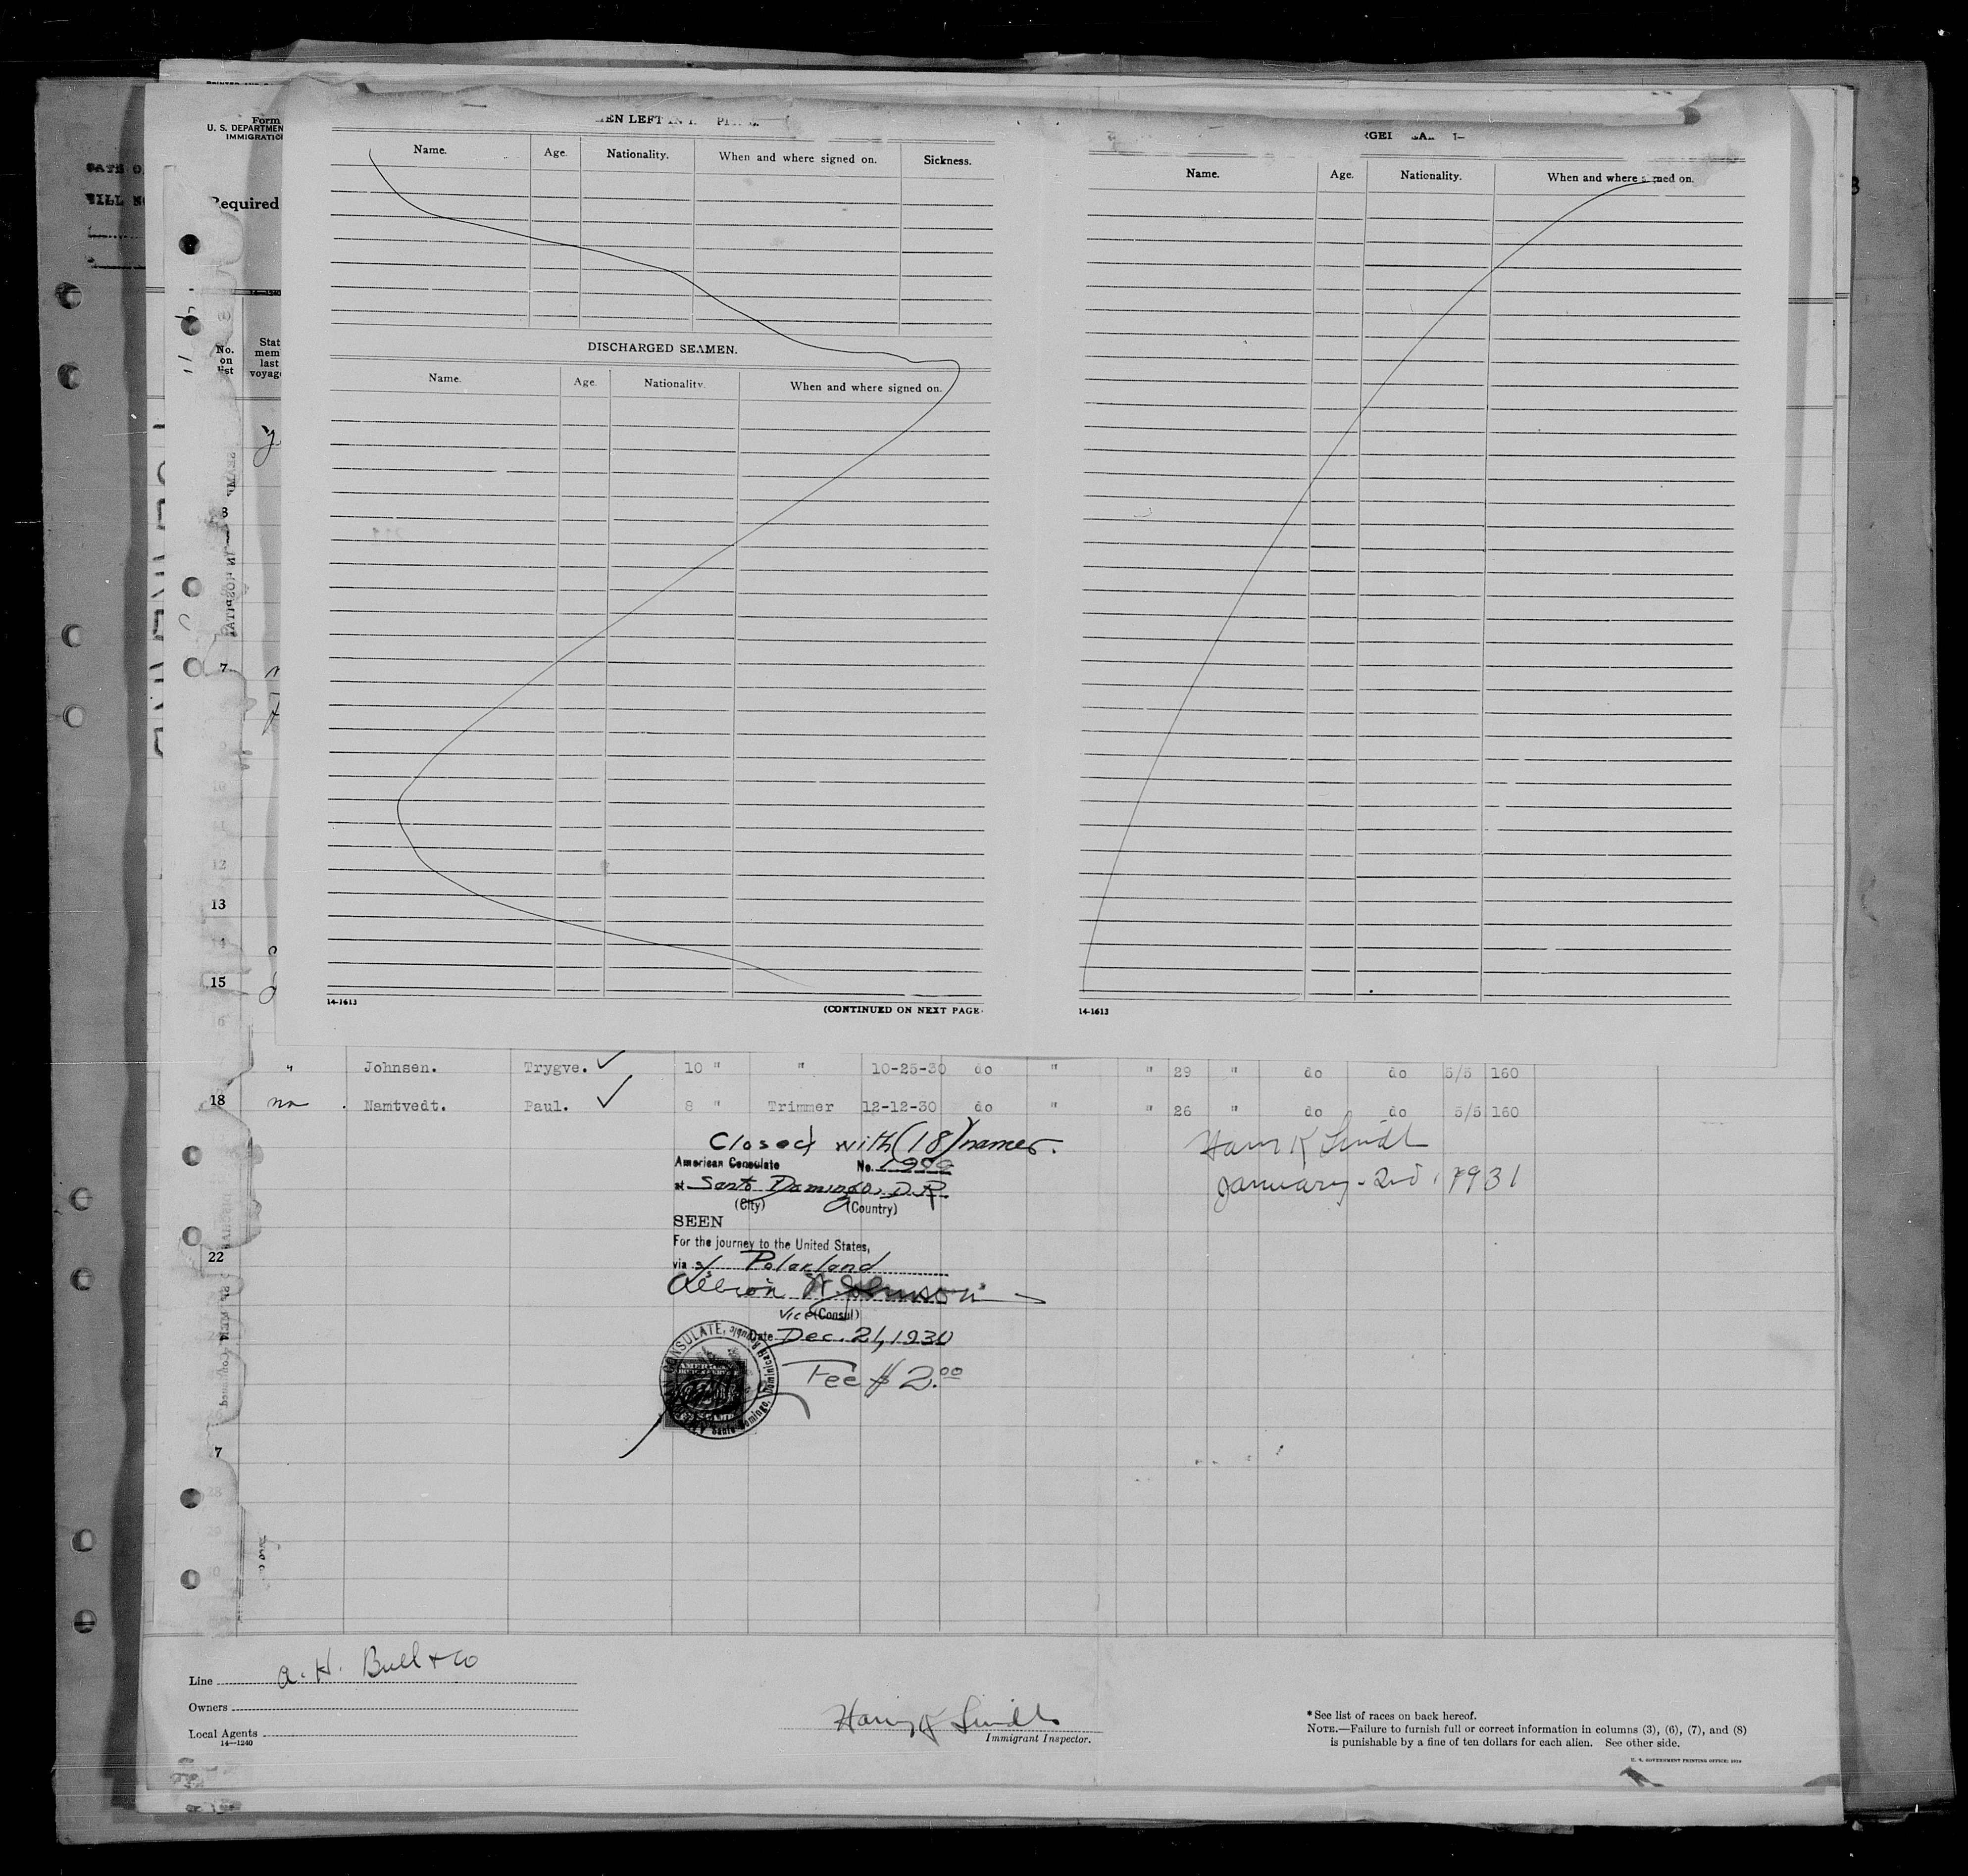 Form
U. S. DEPARTMEN
IMMIGRATIO
Required
No.
on
list
Stat
mem
last
voyag
EN LEFT IN
Name. Age. Nationality. When and where signed on. Sickness.
DISCHARGED SEAMEN.
Name. Age. Nationality. When and where signed on.
14-1613 (CONTINUED ON NEXT PAGE
Name. Age. Nationality. When and where signed on.
14-1613
3
7
12
13
14
15
" Johnsen. Trygve. ✓ 10 " " 10-25-30 do " " 29 " do do 5/5 160
18 no Namtvedt. Paul. ✓ 8 " Trimmer 12-12-30 do " " 26 " do do 5/5 160
Closed with (18) names.
American Consulate No.
at Santo Domingo, D.R.
(City) (Country)
SEEN
For the journey to the United States,
via s/s Polarland
Albion W. Johnson
Vice (Consul)
Date Dec. 21, 1930
Fee $ 2.00
CONSULATE,
Santo Domingo, Dominican Republic
January 2nd, 1931
22
7
Line A. H. Bull & Co
Owners
Local Agents
14-1240
Immigrant Inspector.
* See list of races on back hereof.
NOTE.—Failure to furnish full or correct information in columns (3), (6), (7), and (8)
is punishable by a fine of ten dollars for each alien. See other side.